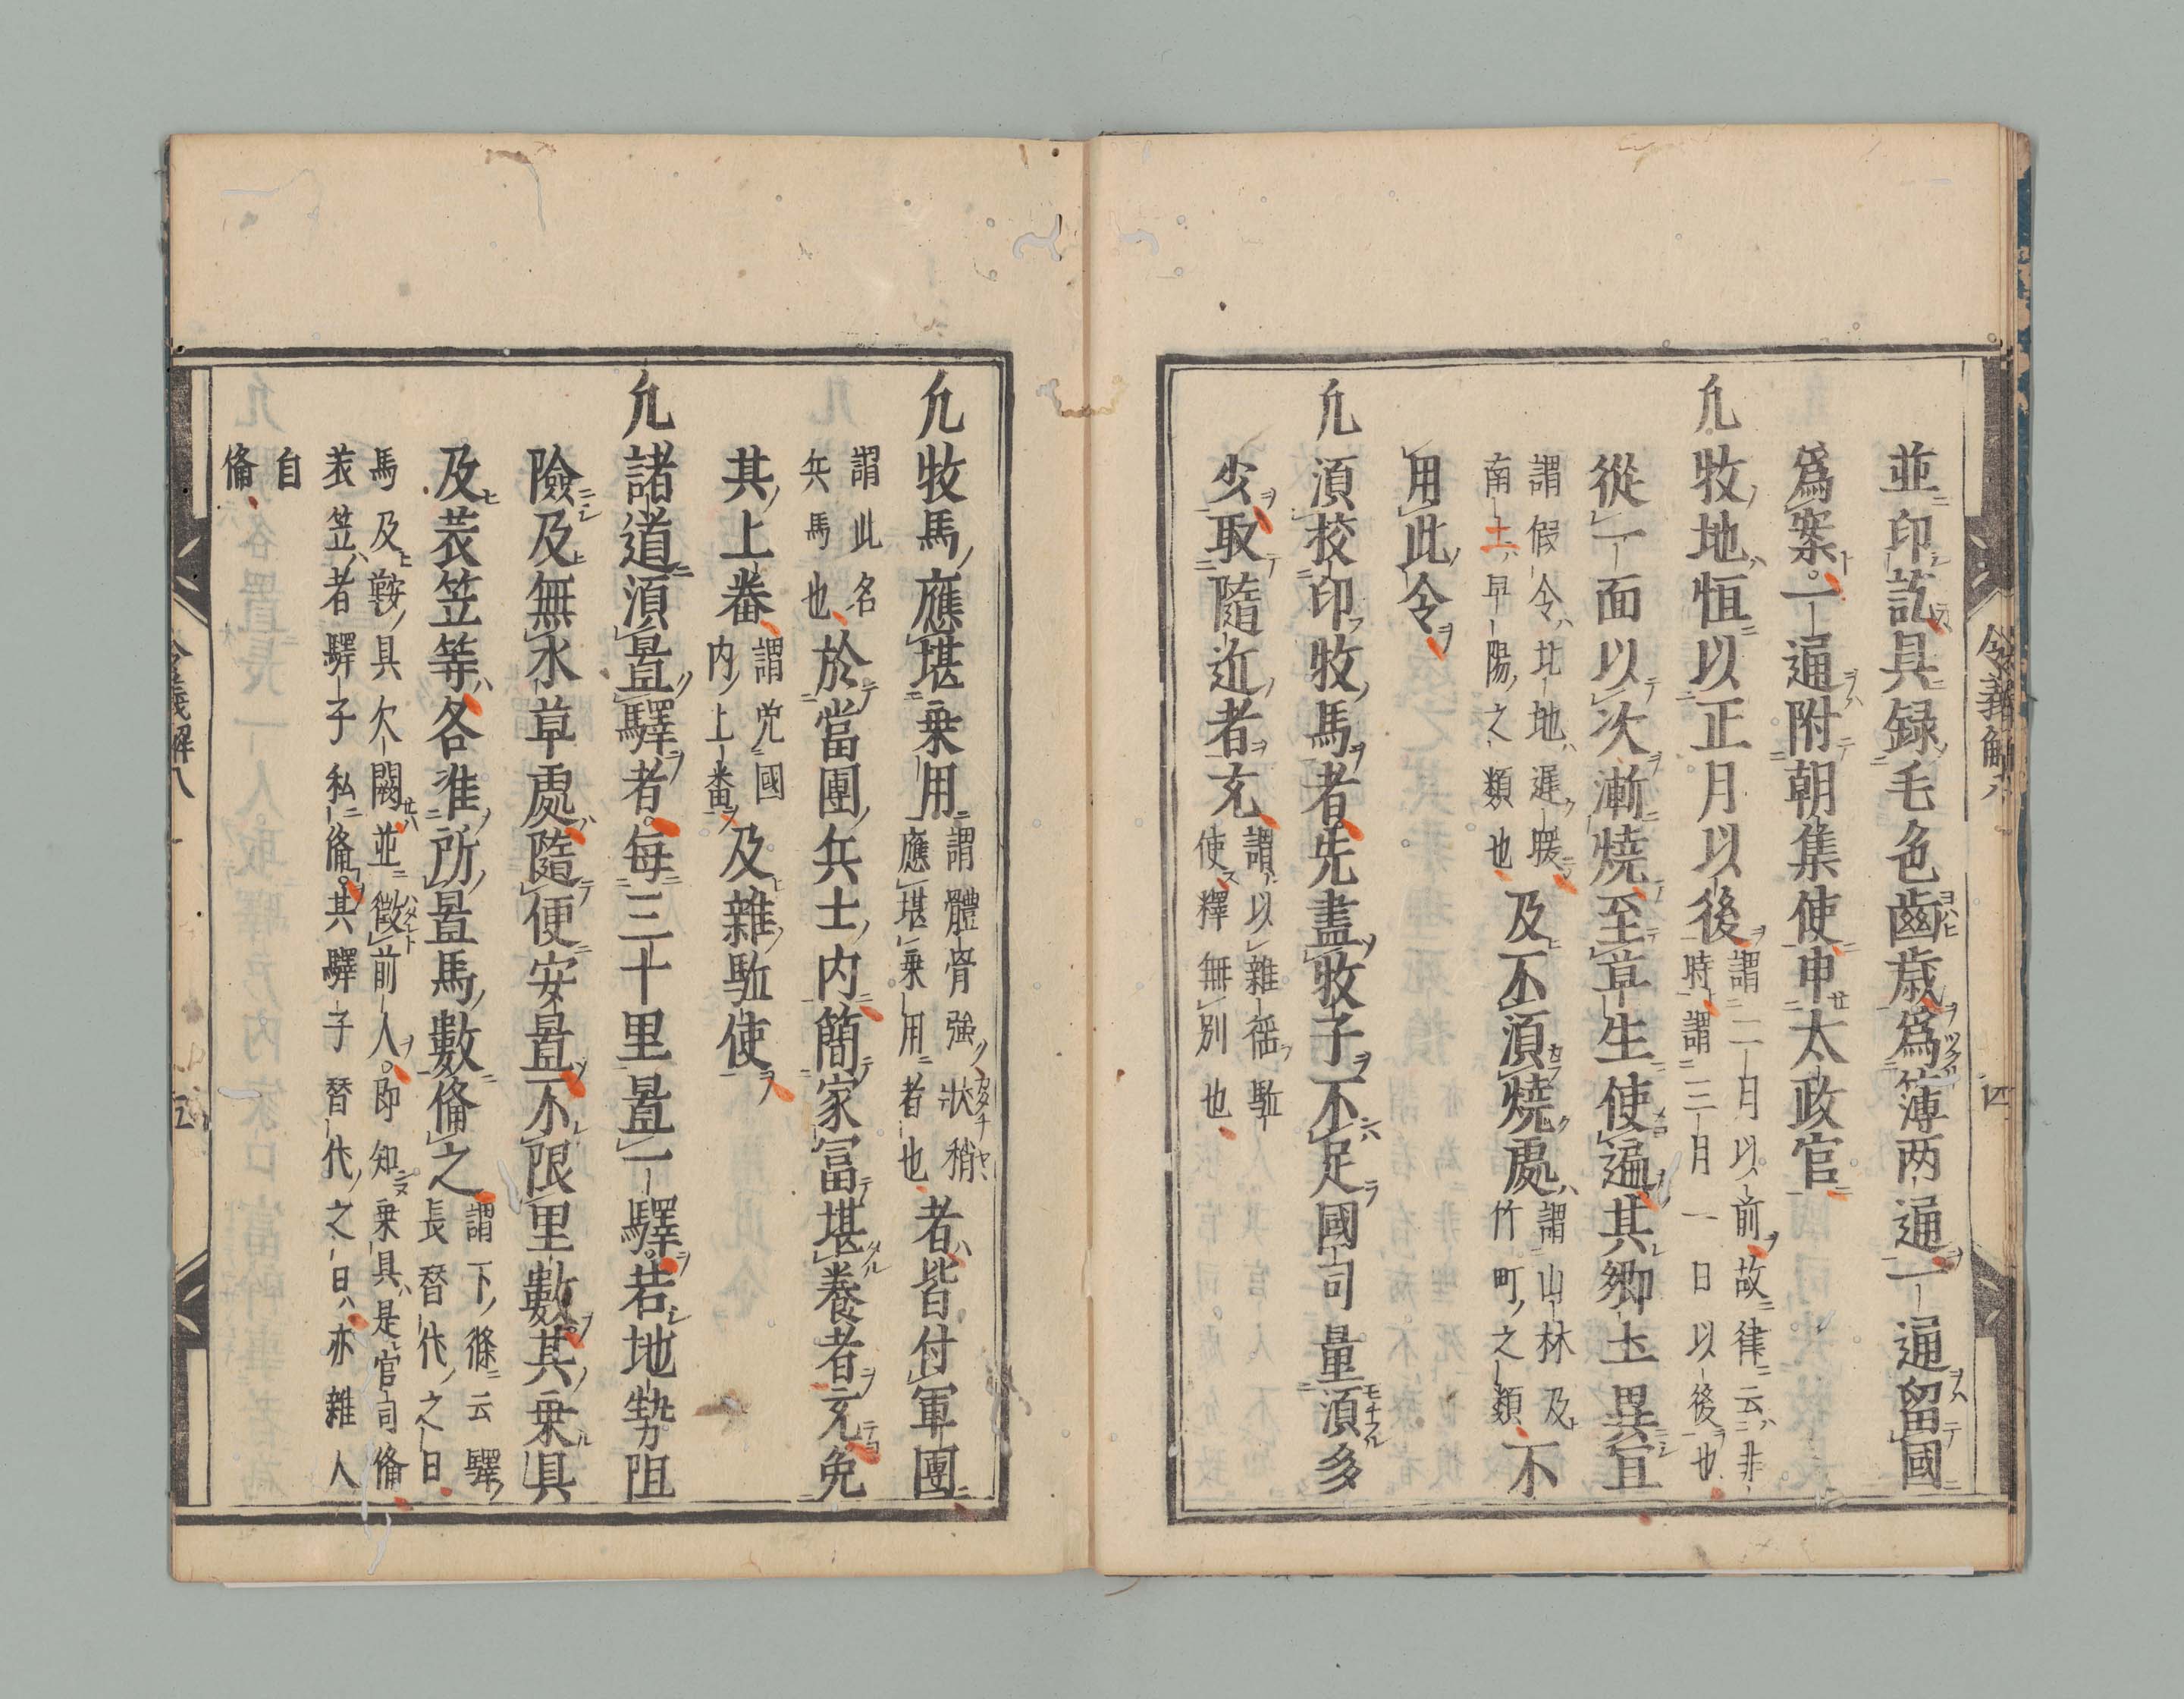 並印訖具録毛色齒歳爲簿两通一通留國
爲案。一通附朝集使申太政官
凢牧地恒以正月以後謂二月以前故律云非
時謂三月一日以後也
從一面以次漸燒至草生使遍其鄕土異冝
謂假令北地遅暖
南土早陽之類也及不湏燒處謂山林及
竹町之類不
用此令
凢湏校印牧馬者先盡牧子不足國司量湏多
少取隨近者充謂以雜徭駈
使釋無別也
令義解八
四
凢牧馬應堪乗用謂體骨強狀稍
應堪乗用者也者皆付軍團
謂此名
兵馬也於當團兵士内簡家冨堪養者充免
其上畨謂兊國
内上番及雜駈使
凢諸道湏置驛者。每三十里置一驛。若地勢阻
險及無水草處隨便安置不限里數其乗具
及蓑笠等各准所置馬數俻之謂下條云驛
長替代之日
馬及鞍具欠闕並徵前人。即知乗具是官司俻
蓑笠者驛子私俻。其驛子替代之日亦雜人
自
俻
令義解八
五